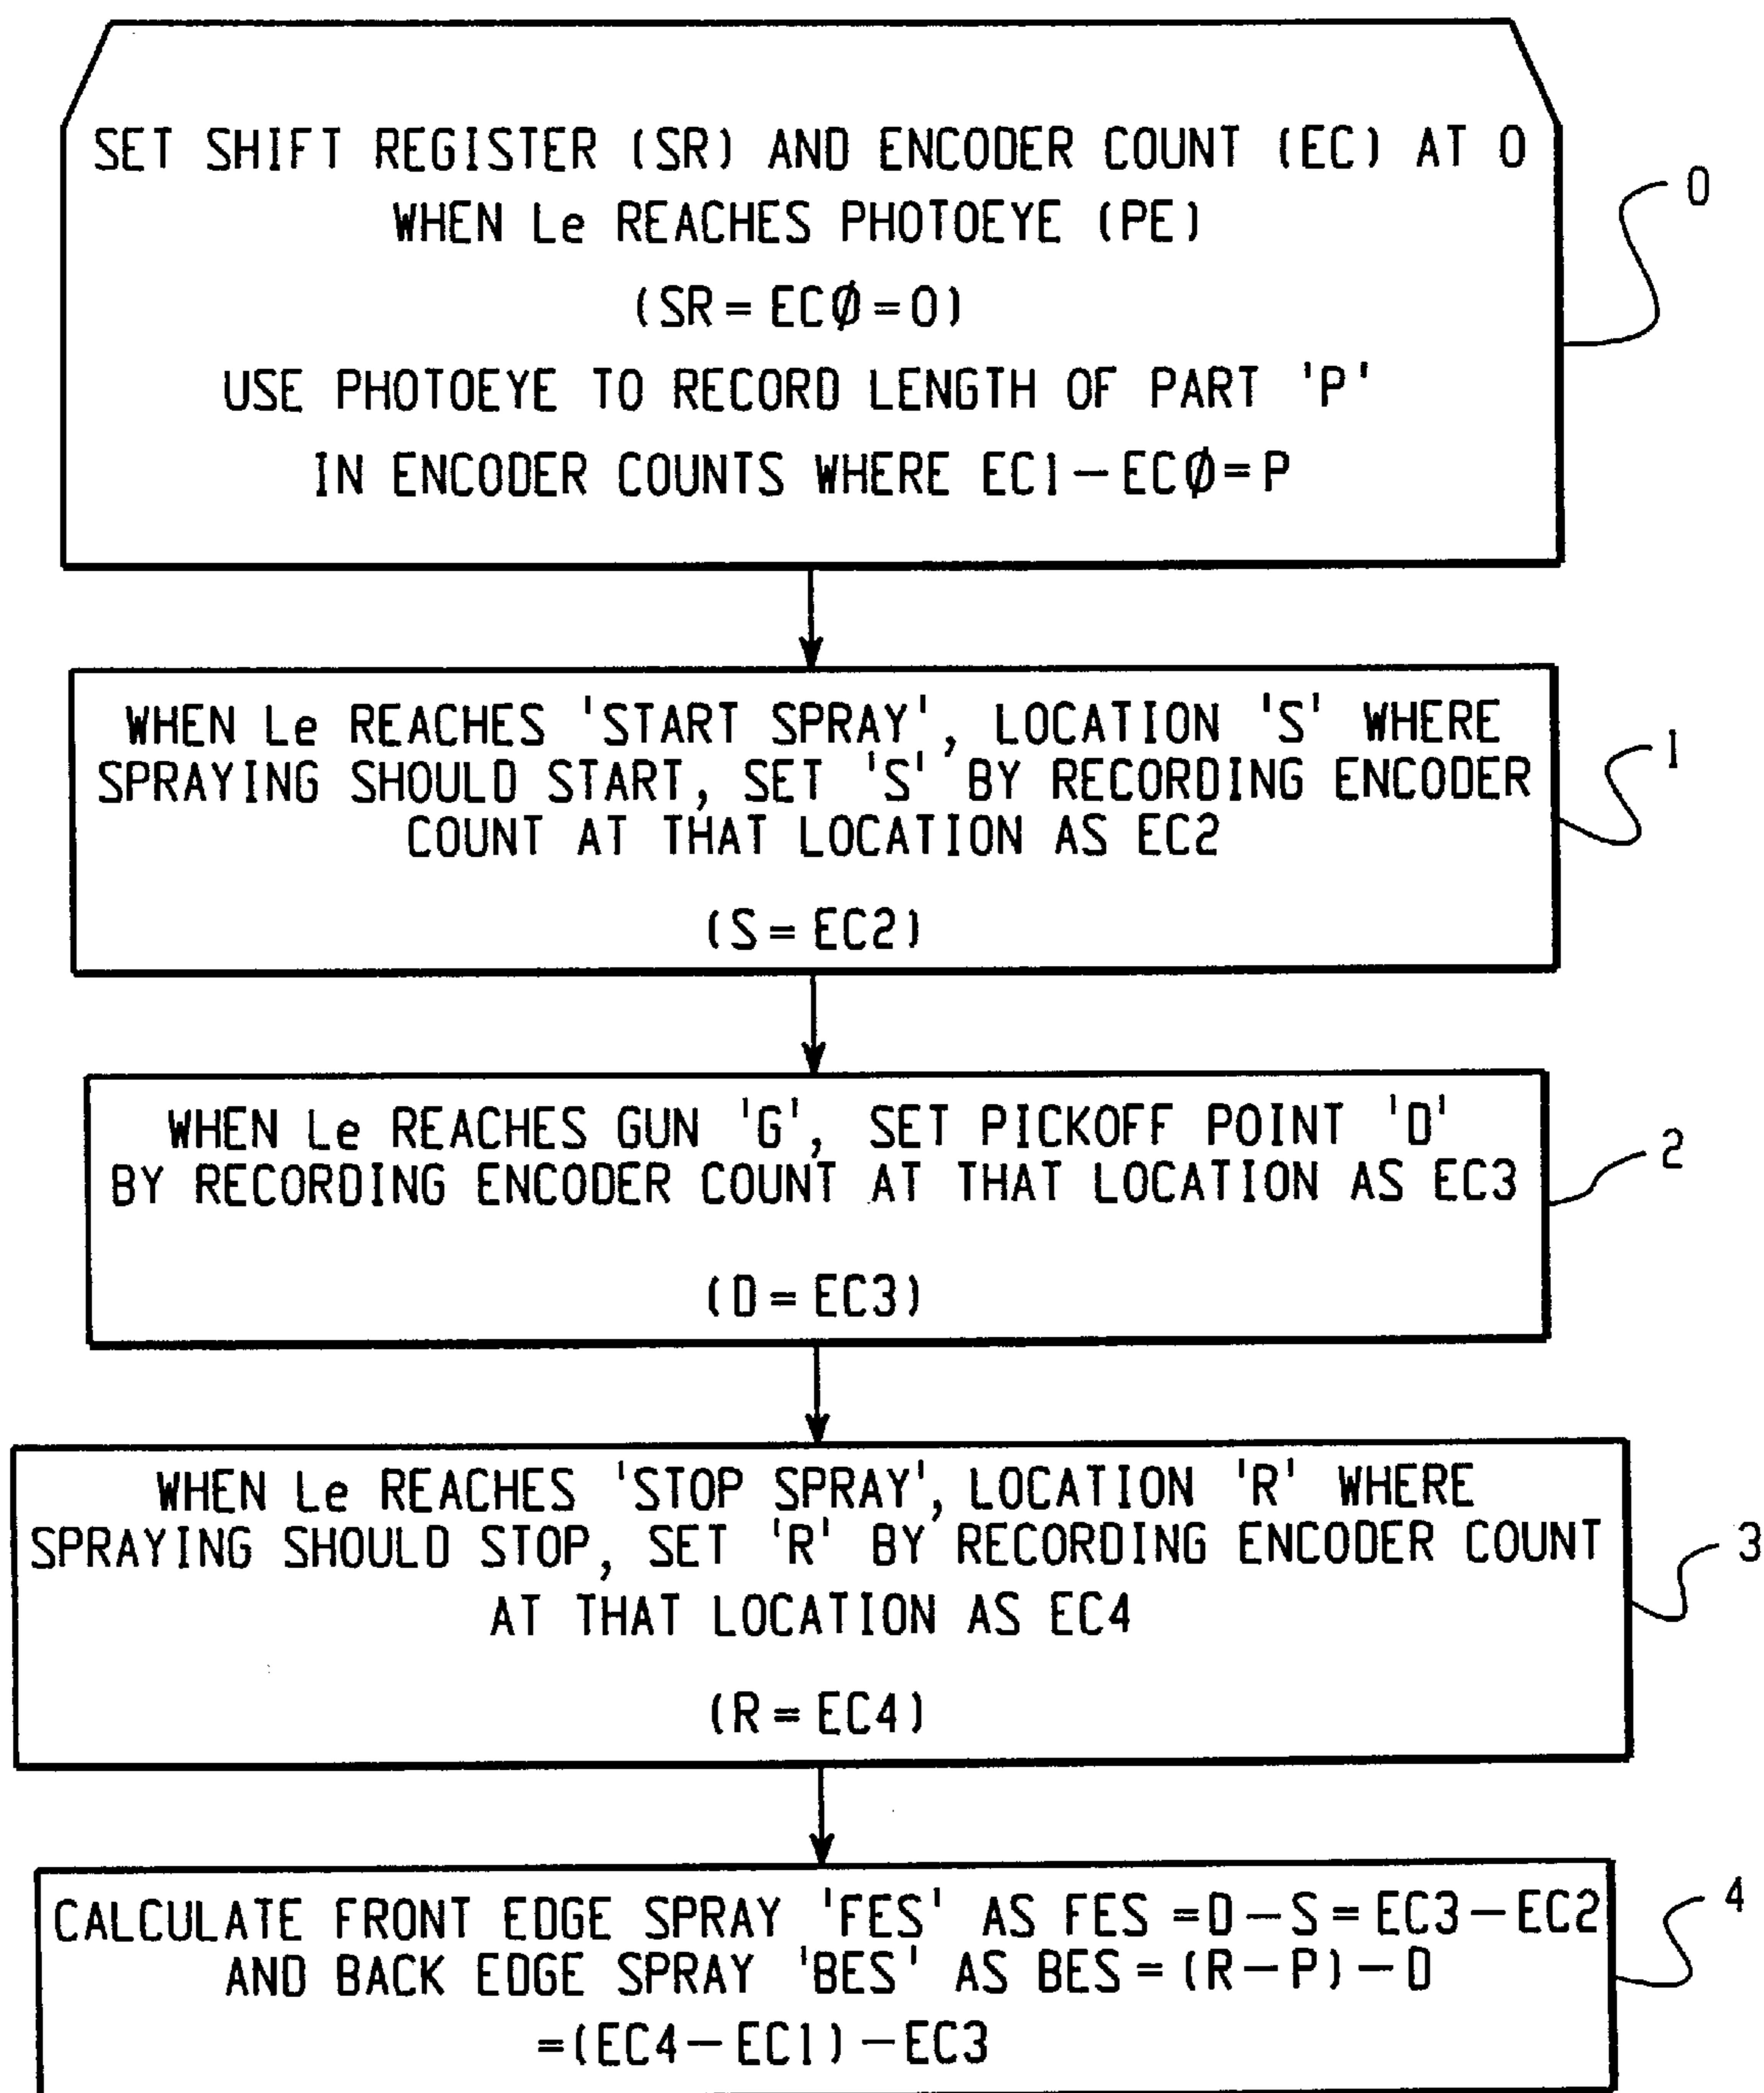 SET SHIFT REGISTER (SR) AND ENCODER COUNT (EC) AT 0
WHEN Le REACHES PHOTOEYE (PE)
(SR = ECØ = 0)
USE PHOTOEYE TO RECORD LENGTH OF PART 'P'
IN ENCODER COUNTS WHERE EC1 – ECØ = P
0
WHEN Le REACHES 'START SPRAY', LOCATION 'S' WHERE
SPRAYING SHOULD START, SET 'S' BY RECORDING ENCODER
COUNT AT THAT LOCATION AS EC2
(S = EC2)
1
WHEN Le REACHES GUN 'G', SET PICKOFF POINT 'D'
BY RECORDING ENCODER COUNT AT THAT LOCATION AS EC3
(D = EC3)
2
WHEN Le REACHES 'STOP SPRAY', LOCATION 'R' WHERE
SPRAYING SHOULD STOP, SET 'R' BY RECORDING ENCODER COUNT
AT THAT LOCATION AS EC4
(R = EC4)
3
CALCULATE FRONT EDGE SPRAY 'FES' AS FES = D – S = EC3 – EC2
AND BACK EDGE SPRAY 'BES' AS BES = (R – P) – D
= (EC4 – EC1) – EC3
4